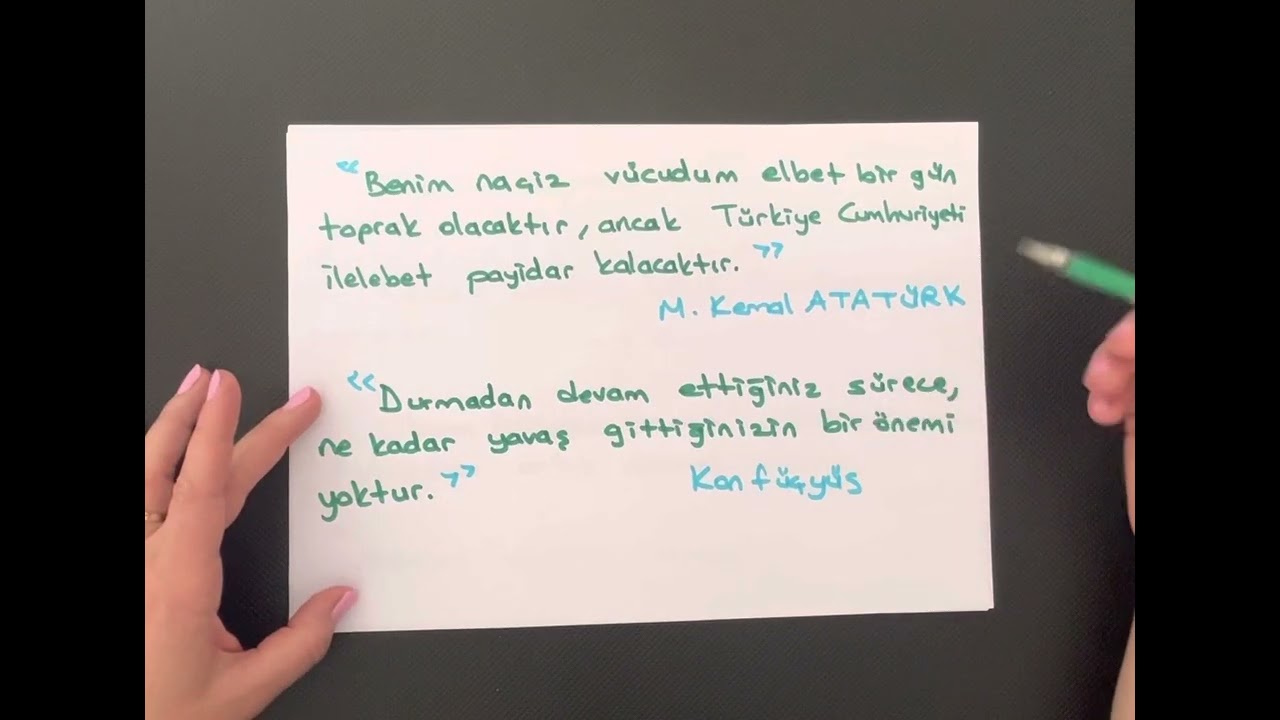 "Benim naçiz vücudum elbet bir gün
toprak olacaktır, ancak Türkiye Cumhuriyeti
ilelebet payidar kalacaktır."
M. Kemal ATATÜRK
"Durmadan devam ettiğiniz sürece,
ne kadar yavaş gittiğinizin bir önemi
yoktur."
Konfüçyüs